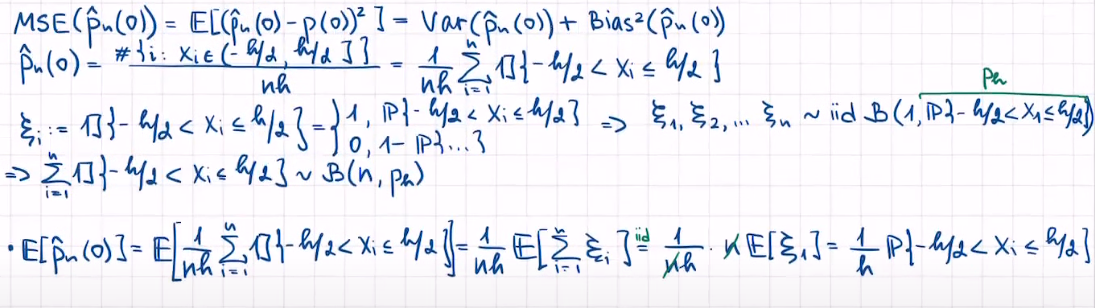 MSE(p̂ₙ(0)) = 𝔼[(p̂ₙ(0) - p(0))²] = Var(p̂ₙ(0)) + Bias²(p̂ₙ(0))
p̂ₙ(0) = #{i: Xᵢ ∈ (-h/2, h/2]} / nh = 1/nh ∑ᵢ₌₁ⁿ 𝟙{-h/2 < Xᵢ ≤ h/2}
ξᵢ := 𝟙{-h/2 < Xᵢ ≤ h/2} = {1, ℙ{-h/2 < Xᵢ ≤ h/2} ; 0, 1 - ℙ{...} => ξ₁, ξ₂, ... ξₙ ~ iid B(1, ℙ{-h/2 < X₁ ≤ h/2}) pₕ
=> ∑ᵢ₌₁ⁿ 𝟙{-h/2 < Xᵢ ≤ h/2} ~ B(n, pₕ)
• 𝔼[p̂ₙ(0)] = 𝔼[1/nh ∑ᵢ₌₁ⁿ 𝟙{-h/2 < Xᵢ ≤ h/2}] = 1/nh 𝔼[∑ᵢ₌₁ⁿ ξᵢ] =iid 1/nh · n 𝔼[ξ₁] = 1/h ℙ{-h/2 < Xᵢ ≤ h/2}